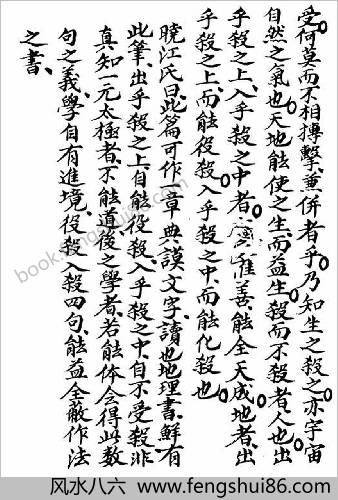 受何莫而不相摶擊兼併者乎乃知生之殺之亦宇宙
自然之氣也天地能使之生而益生殺而不殺者人也出
乎殺之上入乎殺之中者惟善能全天成地者出
乎殺之上而能役殺入乎殺之中而能化殺也
曉江氏曰此篇可作一章典謨文字讀也地理書鮮有
此筆出乎殺之上自能役殺入乎殺之中自不受殺非
真知一元太極者不能道後之學者若能体会得此数
句之義學自有進境役殺入殺四句能益全蔽作法
之書
book.fengshui86.com
风水八六 www.fengshui86.com